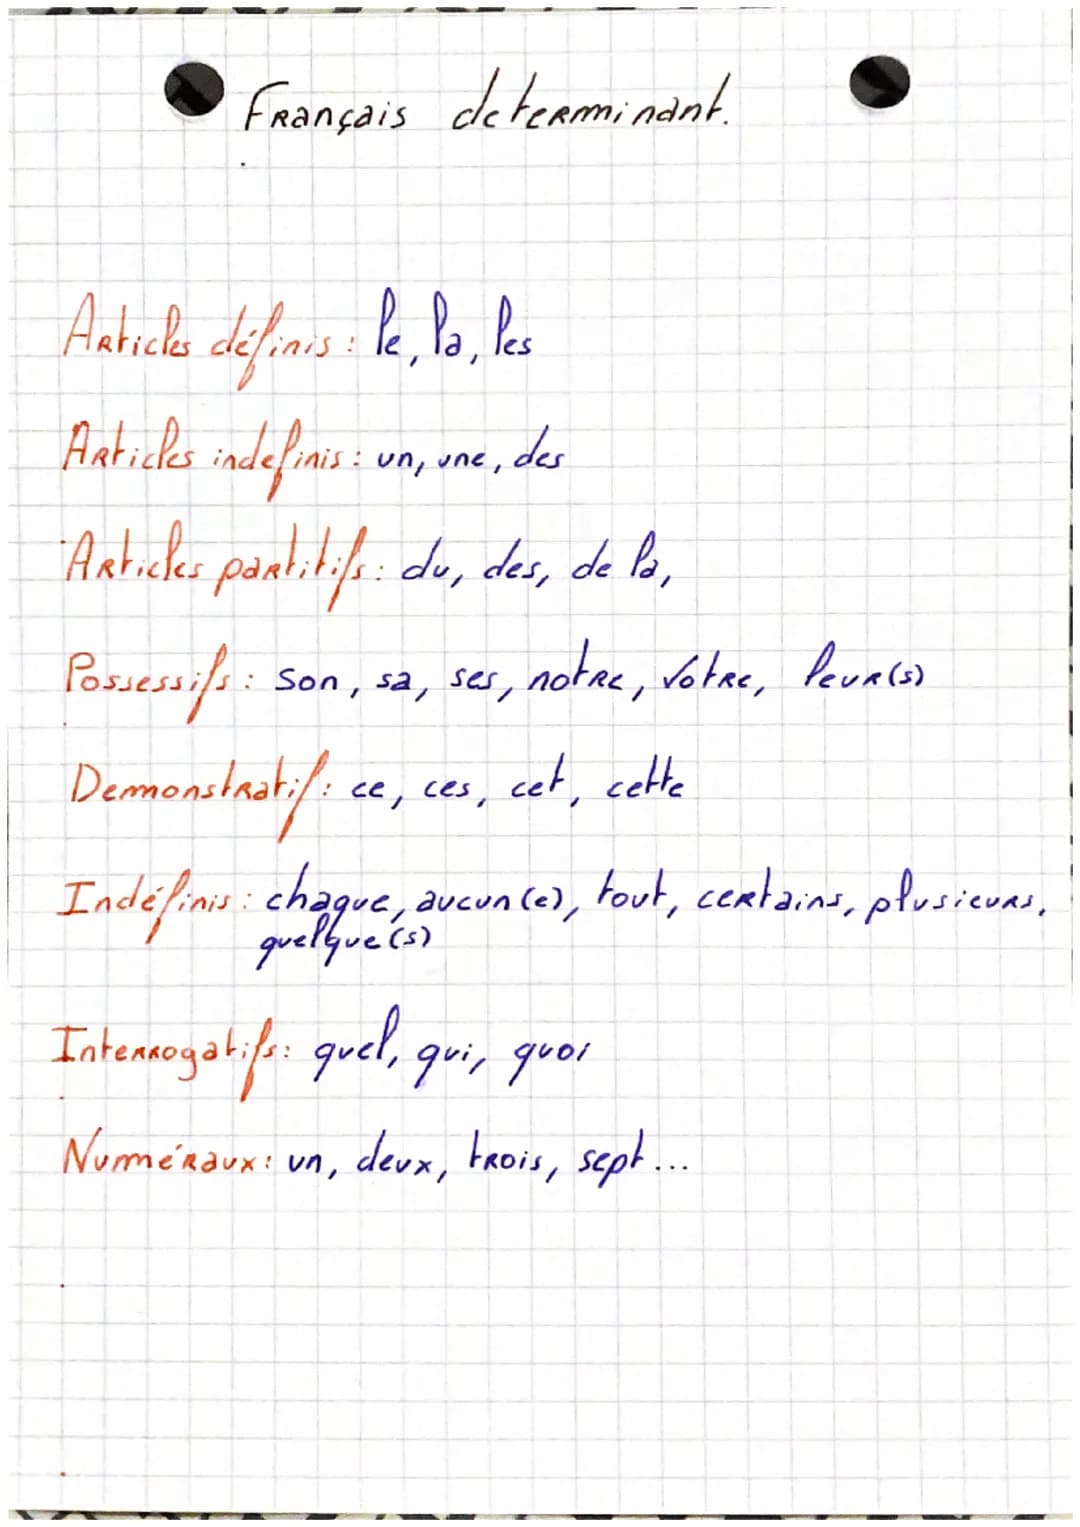 Français determinant.
Articles définis : le, la, les
Articles indefinis : un, une, des
Articles partitifs : du, des, de la,
Possessifs : son, sa, ses, notre, votre, leur(s)
Demonstratif : ce, ces, cet, cette
Indéfinis : chaque, aucun(e), tout, certains, plusieurs,
quelque(s)
Interrogatifs : quel, qui, quoi
Numéraux : un, deux, trois, sept...